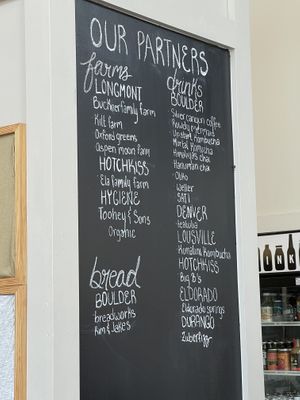 OUR PARTNERS
farms
LONGMONT
Buckner family farm
Kilt farm
Oxford greens
Aspen moon farm
HOTCHKISS
Ela family farm
HYGIENE
Toohey & Sons
Organic
bread
BOULDER
breadworks
Kim & Jakes
drinks
BOULDER
Silver canyon coffee
Rowdy mermaid
Upstart kombucha
Mortal Kombucha
Himalaya chai
Hanuman chai
Weller
DENVER
teakulia
LOUSVILLE
Kumalani Kombucha
HOTCHKISS
Big B's
ELDORADO
Eldorado springs
DURANGO
Zuberfizz